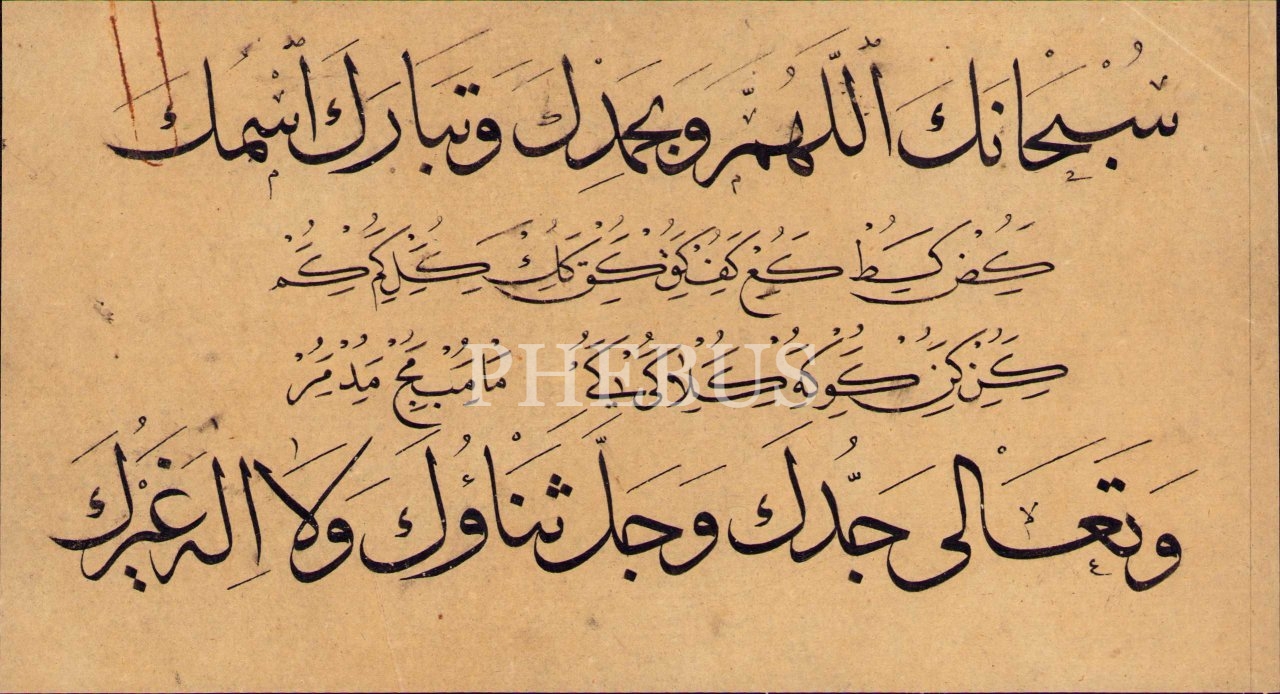 سُبْحَانَكَ ٱللَّهُمَّ وَبِحَمْدِكَ وَتَبَارَكَ ٱسْمُكَ
كض كط كع كف كق كك كل كم كم
كن كن كو كه كلا كى كى ما مب مج مد مر
PHEBUS
وَتَعَالَى جَدُّكَ وَجَلَّ ثَنَاؤُكَ وَلَا اِلَهَ غَيْرُكَ